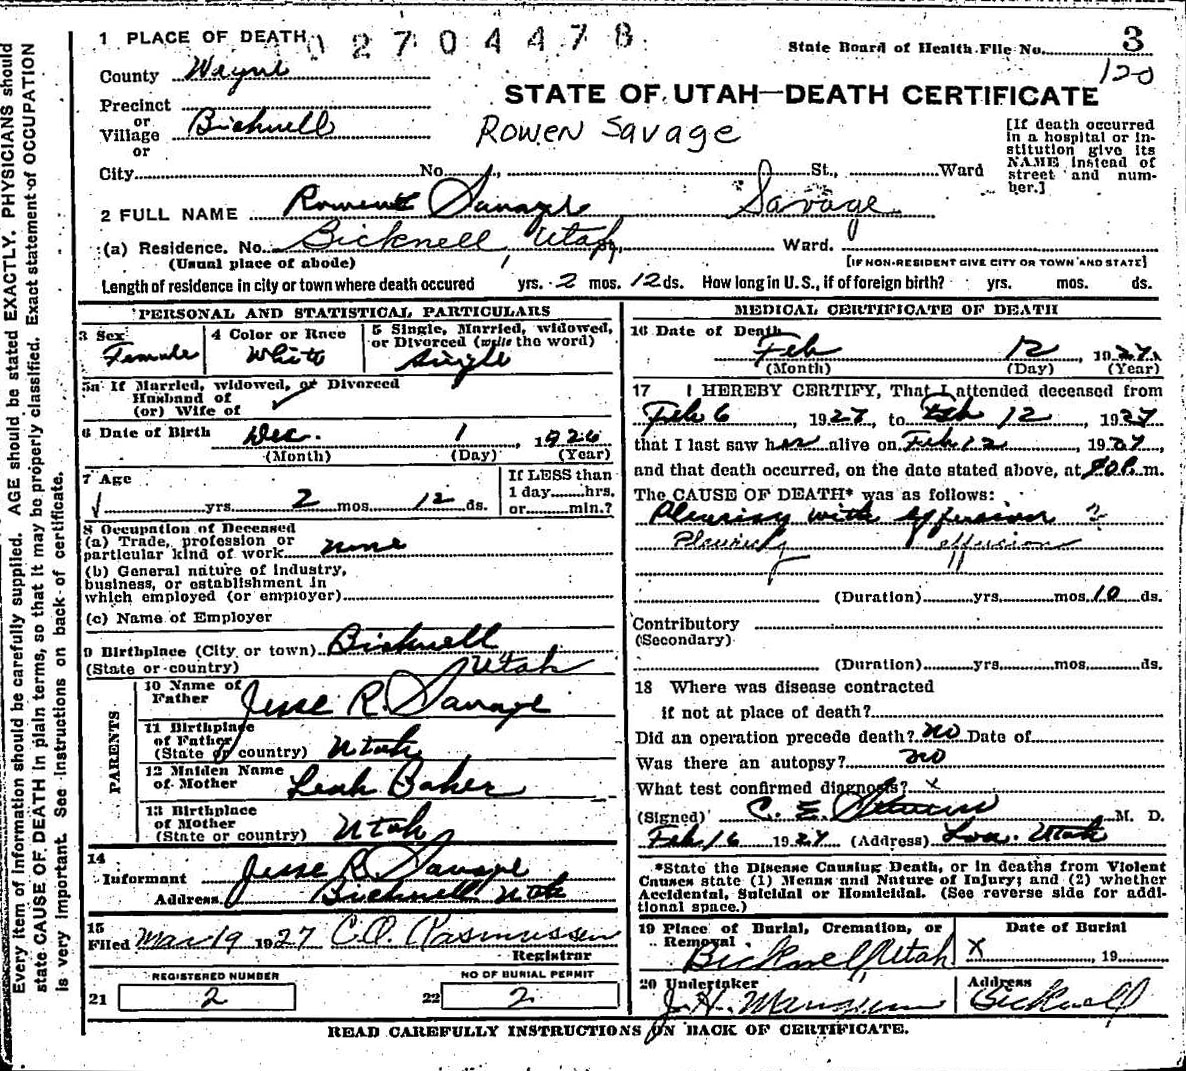 1 PLACE OF DEATH
0 2 7 0 4 4 7 8
State Board of Health File No. 3
120
County Wayne
STATE OF UTAH—DEATH CERTIFICATE
Precinct
or
Village Bicknell
or
Rowen Savage
[If death occurred
in a hospital or in-
stitution give its
NAME instead of
street and num-
ber.]
City No. St., Ward
2 FULL NAME Savage Savage
(a) Residence. No. Bicknell, Utah, Ward.
(Usual place of abode)
[IF NON-RESIDENT GIVE CITY OR TOWN AND STATE]
Length of residence in city or town where death occured yrs. 2 mos. 12 ds. How long in U.S., if of foreign birth? yrs. mos. ds.
PERSONAL AND STATISTICAL PARTICULARS
3 Sex
Female
4 Color or Race
White
5 Single, Married, widowed,
or Divorced (write the word)
Single
5a If Married, widowed, or Divorced
Husband of
(or) Wife of
6 Date of Birth Dec. 1, 1926
(Month) (Day) (Year)
7 Age
yrs. 2 mos. 12 ds.
If LESS than
1 day hrs.
or min.?
8 Occupation of Deceased
(a) Trade, profession or
particular kind of work none
(b) General nature of industry,
business, or establishment in
which employed (or employer)
(c) Name of Employer
9 Birthplace (City or town) Bicknell
(State or country) Utah
PARENTS
10 Name of
Father Jesse R. Savage
11 Birthplace
of Father
(State or country) Utah
12 Maiden Name
of Mother Leah Baker
13 Birthplace
of Mother
(State or country) Utah
14
Informant Jesse R. Savage
Address Bicknell Utah
15
Filed Mar 19 1927 C.O. Rasmussen
Registrar
REGISTERED NUMBER
21 2
NO OF BURIAL PERMIT
22 2
MEDICAL CERTIFICATE OF DEATH
16 Date of Death
Feb 12, 1927
(Month) (Day) (Year)
17 I HEREBY CERTIFY, That I attended deceased from
Feb 6 1927 to Feb 12, 1927
that I last saw her alive on Feb 12, 1927,
and that death occurred, on the date stated above, at m.
The CAUSE OF DEATH* was as follows:
Pleurisy with effusion ?
Pleurisy effusion
(Duration) yrs. mos. 10 ds.
Contributory
(Secondary)
(Duration) yrs. mos. ds.
18 Where was disease contracted
if not at place of death?
Did an operation precede death? no Date of
Was there an autopsy? no
What test confirmed diagnosis? x
(Signed) C. E. M. D.
Feb 16 1927 (Address) Loa. Utah
*State the Disease Causing Death, or in deaths from Violent
Causes state (1) Means and Nature of Injury; and (2) whether
Accidental, Suicidal or Homicidal. (See reverse side for addi-
tional space.)
19 Place of Burial, Cremation, or
Removal
Bicknell, Utah
Date of Burial
X , 19
20 Undertaker
J. H.
Address
Bicknell
READ CAREFULLY INSTRUCTIONS ON BACK OF CERTIFICATE.
Every item of information should be carefully supplied. AGE should be stated EXACTLY. PHYSICIANS should
state CAUSE OF DEATH in plain terms, so that it may be properly classified. Exact statement of OCCUPATION
is very important. See instructions on back of certificate.